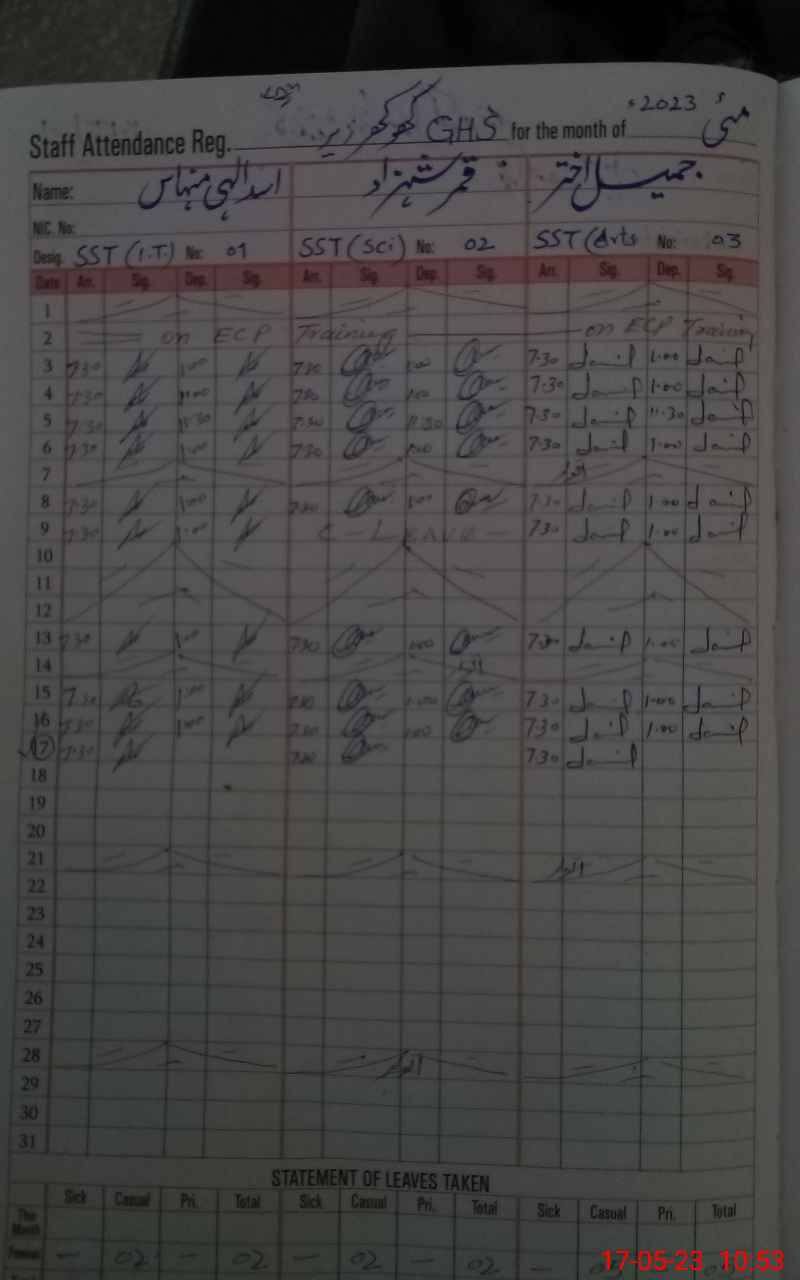 Staff Attendance Reg. گھوکھر زیر GHS for the month of مئی 2023ء
Name: اسد الہی منہاس قمر شہزاد جمیل اختر
NIC. No:
Desig. SST (I.T.) No: 01 SST (Sci) No: 02 SST (Arts No: 03
Date Arr. Sig. Dep. Sig. Arr. Sig. Dep. Sig. Arr. Sig. Dep. Sig.
1
2 on ECP Training on ECP Training
3 7:30 1:00 7:30 1:00 7:30 1:00
4 7:30 7:30 1:00 7:30 1:00
5 7:30 11:30 7:30 11:30 7:30 11:30
6 7:30 1:00 7:30 1:00 7:30 1:00
7 اتوار
8 7:30 1:00 7:30 1:00 7:30 1:00
9 7:30 1:00 C-Leave- 7:30 1:00
10
11
12
13 7:30 1:00 7:30 1:00 7:30 1:00
14 اتوار
15 7:30 1:00 7:30 1:00 7:30 1:00
16 7:30 1:00 7:30 1:00 7:30 1:00
17 7:30 7:30 7:30
18
19
20
21 اتوار
22
23
24
25
26
27
28 اتوار
29
30
31
STATEMENT OF LEAVES TAKEN
Sick Casual Pri. Total Sick Casual Pri. Total Sick Casual Pri. Total
This Month
— 02 — 02 — 02 — 02 —
17-05-23 10:53